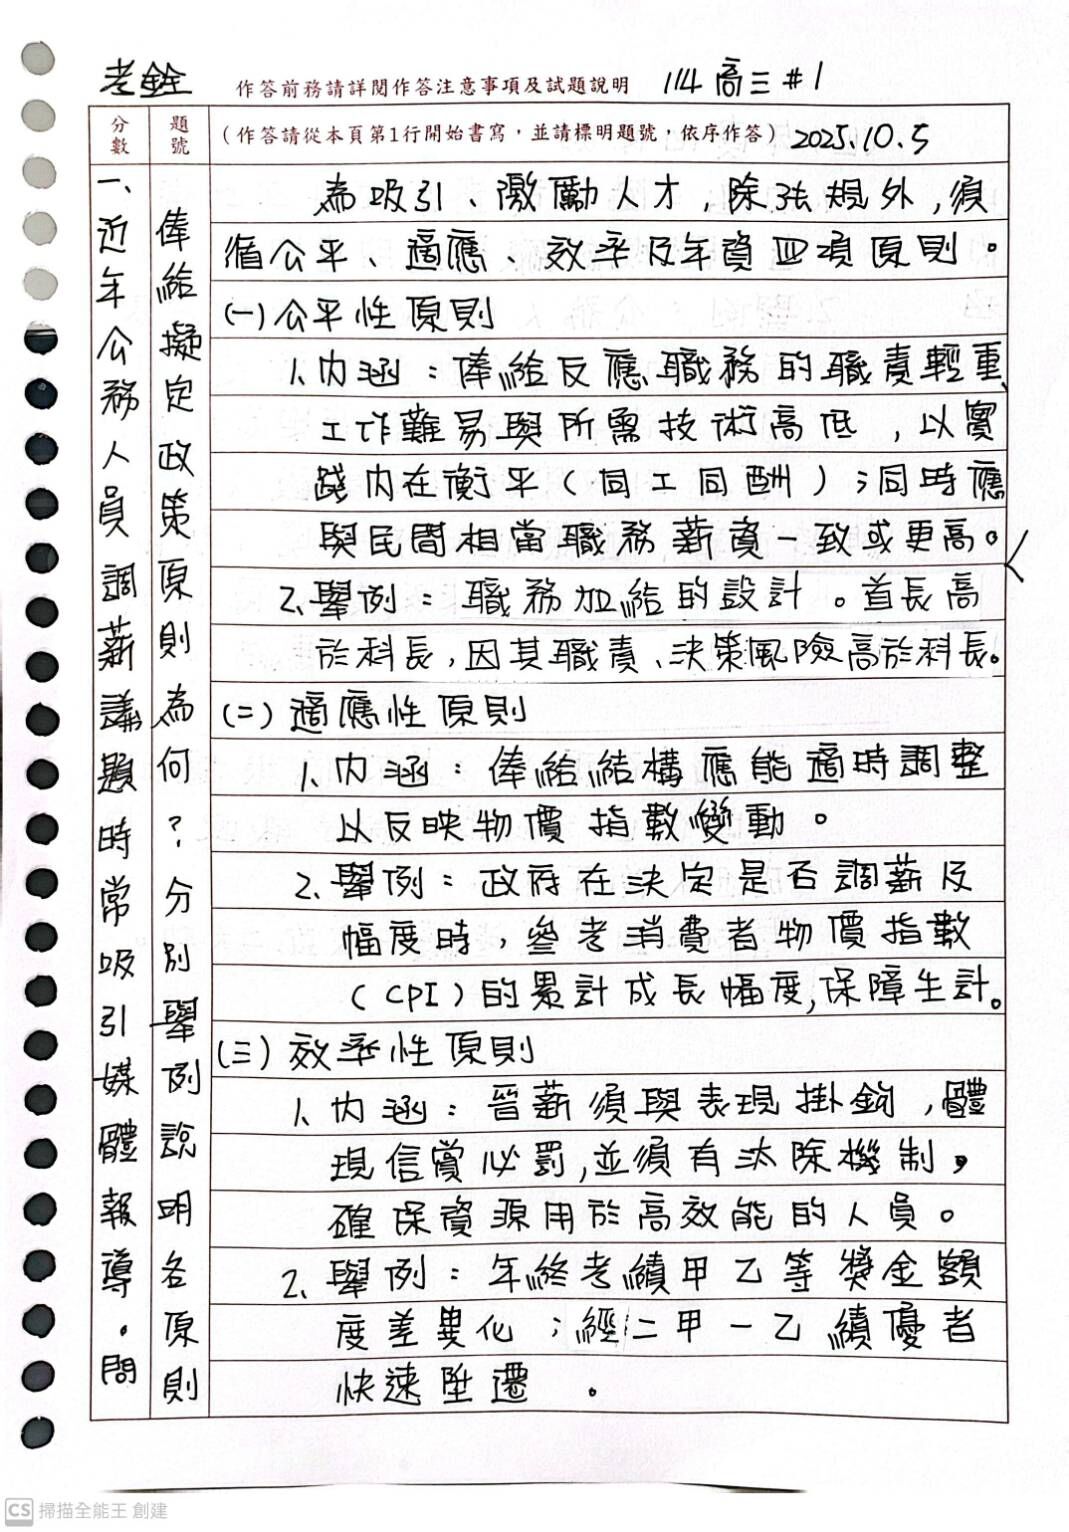 老銓 作答前務請詳閱作答注意事項及試題說明 114高三#1
分數 題號 (作答請從本頁第1行開始書寫，並請標明題號，依序作答) 2025.10.5
一、近年公務人員調薪議題時常吸引媒體報導。問
俸給擬定政策原則為何？分別舉例說明各原則
為吸引、激勵人才，除法規外，須
循公平、適應、效率及年資四項原則。
(一)公平性原則
1.內涵：俸給反應職務的職責輕重、
工作難易與所需技術高低，以實
踐內在衡平(同工同酬)；同時應
與民間相當職務薪資一致或更高。
2.舉例：職務加給的設計。首長高
於科長，因其職責、決策風險高於科長。
(二)適應性原則
1.內涵：俸給結構應能適時調整
以反映物價指數變動。
2.舉例：政府在決定是否調薪及
幅度時，參考消費者物價指數
(CPI)的累計成長幅度，保障生計。
(三)效率性原則
1.內涵：晉薪須與表現掛鉤，體
現信賞必罰，並須有汰除機制。
確保資源用於高效能的人員。
2.舉例：年終考績甲乙等獎金額
度差異化；經二甲一乙績優者
快速陞遷。
CS 掃描全能王 創建